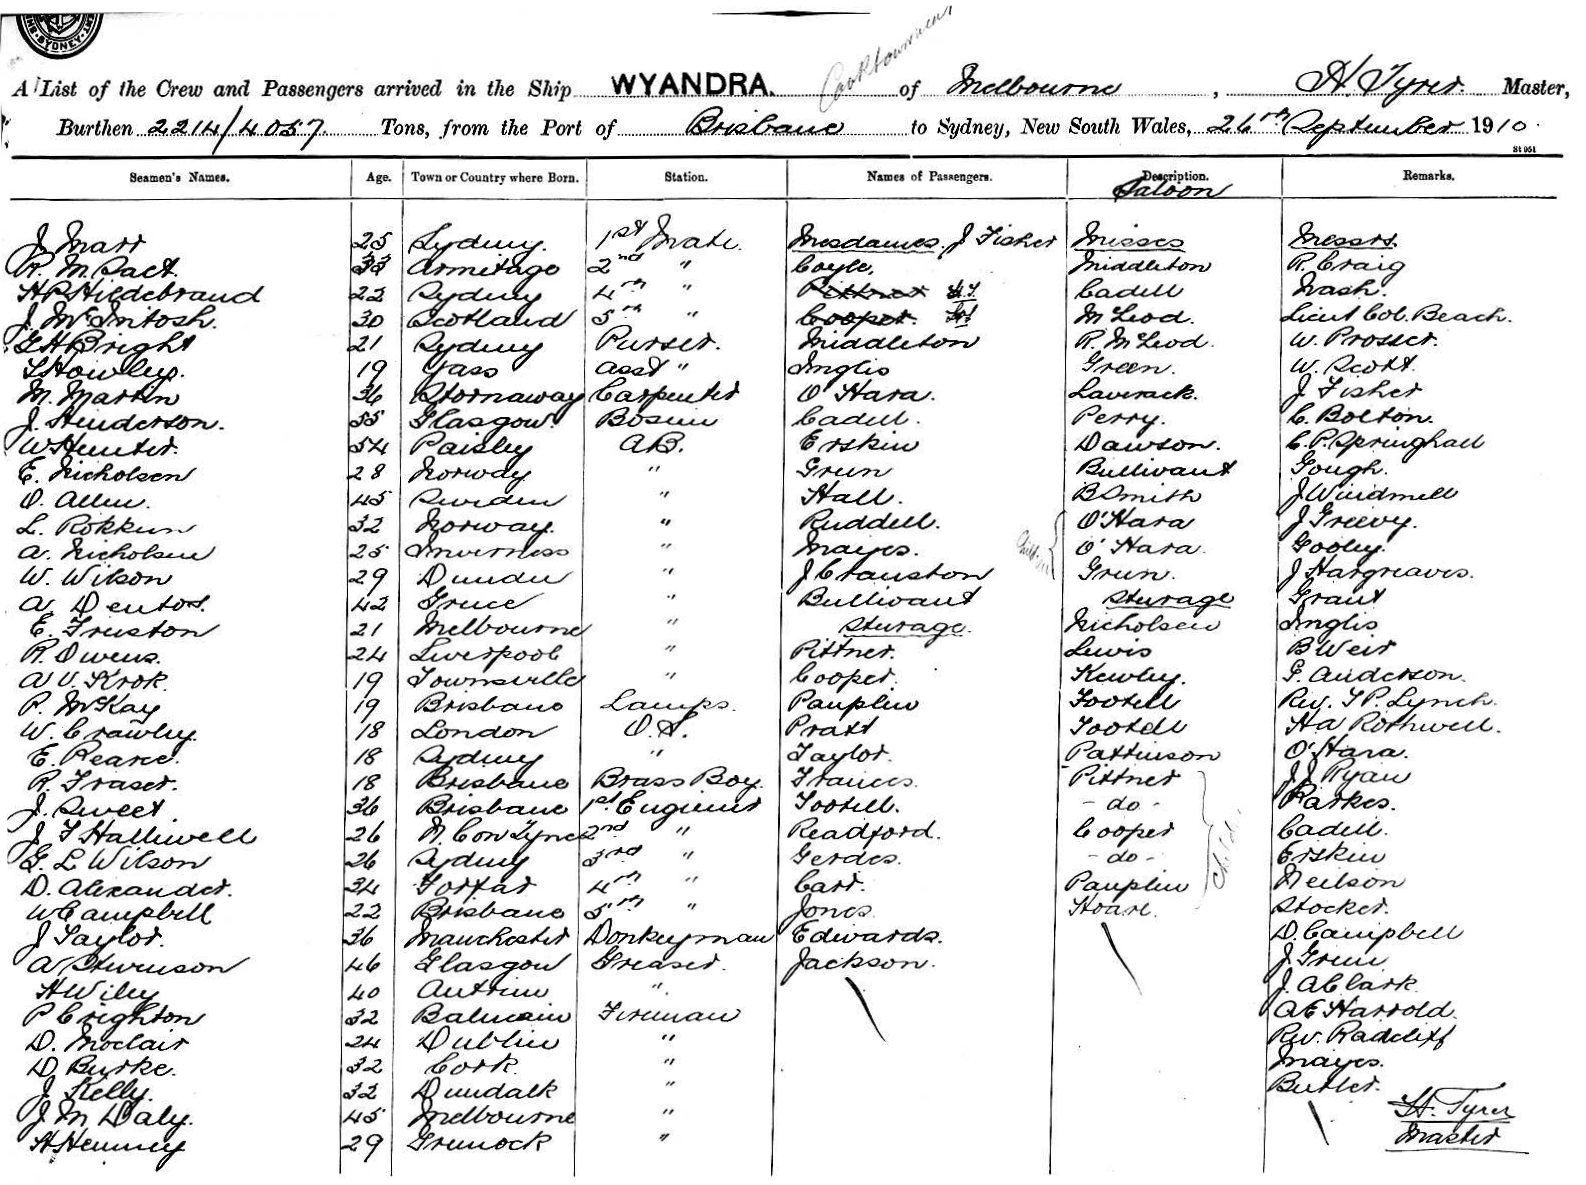 SYDNEY
Cooktown
A List of the Crew and Passengers arrived in the Ship WYANDRA. of Melbourne, H. Tyrer. Master,
Burthen 2214/4057. Tons, from the Port of Brisbane to Sydney, New South Wales, 26th September 1910.
St 951
Seamen's Names. Age. Town or Country where Born. Station. Names of Passengers. Description. Remarks.
Saloon
J. Marr 25 Sydney. 1st Mate. Mesdames, J Fisher Misses Messrs.
R. M. Sact. 33 Armitage 2nd " Coyle. Middleton R. Craig
H P Hildebrand 22 Sydney 4th " Pittner Cadell Nash.
J. McIntosh. 30 Scotland 5th " Cooper. McLeod. Lieut Col. Beach.
G H Bright 21 Sydney Purser. Middleton R. McLeod. W. Prosser.
S Howley. 19 Yass Asst " Inglis Green. W. Scott.
M. Martin 36 Stornaway Carpenter O'Hara. Laverack. J Fisher
J. Henderson. 55 Glasgow. Bosun Cadell. Perry. C. Bolton.
W Hunter. 54 Paisley A.B. Erskin Dawson. C. P. Springhall
E. Nicholsen 28 Norway " Green Bullivant Gough.
O. Allen. 45 Sweden " Hall. B Smith J Windmell
L. Rokkun 32 Norway. " Ruddell. O'Hara J Greevy.
A. Nicholsen 25 Inverness " Mayes. O'Hara. Gooley.
W. Wilson 29 Dundee " J Cranston Green. J Hargreaves.
A. Dentos. 42 Greece " Bullivant Steerage Grant
E. Fruston 21 Melbourne " Steerage. Nicholsen Inglis
R. Owens. 24 Liverpool " Pittner. Lewis B Weir
A V. Krok. 19 Townsville " Cooper. Kewley. G. Anderson.
P. McKay 19 Brisbane Lamps. Pauplin Tootell Rev. T P. Lynch.
W. Crawley. 18 London O.S. Pratt Tootell H A Rothwell.
E. Pearce. 18 Sydney " Taylor. Pattinson O'Hara.
R. Fraser. 18 Brisbane Brass Boy. Frances. Pittner J J Ryan
J. Sweet. 36 Brisbane 1st Engineer Tootell. - do - Parkes.
J. F Halliwell 26 N. Con Tyne 2nd " Readford. Cooper Cadell.
G. L. Wilson 26 Sydney 3rd " Gerdes. - do - Erskin
D. Alexander. 34 Forfar 4th " Carr. Pauplin Neilson
W Campbell 22 Brisbane 5th " Jones Hoare. Stocker.
J Taylor. 36 Manchester Donkeyman Edwards. D. Campbell
A Stevenson 46 Glasgow Greaser. Jackson. J. Green
H Wiley 40 Antrim " J. A Clark.
P Crighton 32 Balmain Fireman A E Harrold.
D. Moclair 24 Dublin " Rev. Radcliff
D Burke. 32 Cork. " Mayes.
J Kelly. 32 Dundalk " Butler.
J M Daly. 45 Melbourne "
H Henney 29 Greenock "
H. Tyrer
Master